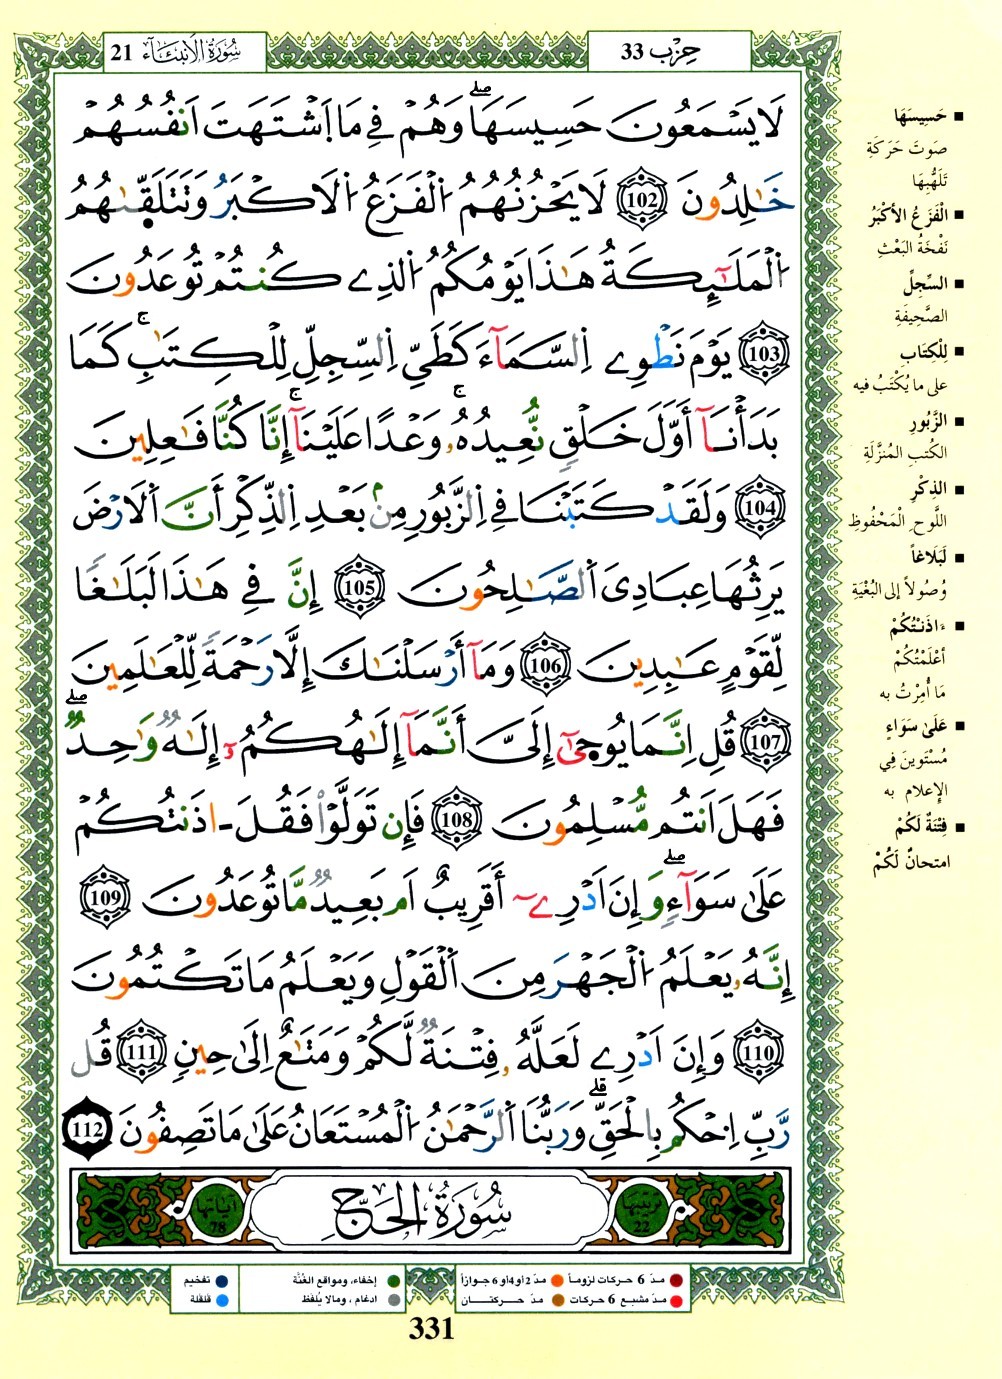 سُورَةُ الْأَنبِيَاء 21
حِزْب 33
لَا يَسْمَعُونَ حَسِيسَهَا وَهُمْ فِي مَا اَشْتَهَتَ اَنفُسُهُمْ
خَٰلِدُونَ 102 لَا يَحْزُنُهُمُ اُلْفَزَعُ اُلَاكْبَرُ وَتَتَلَقّ۪ىٰهُمُ
اُلْمَلَٰٓئِكَةُ هَٰذَا يَوْمُكُمُ اُلذِے كُنتُمْ تُوعَدُونَ
103 يَوْمَ نَطْوِے اِ۬لسَّمَآءَ كَطَيِّ اِ۬لسِّجِلِّ لِلْكِتَٰبِ كَمَا
بَدَأْنَآ أَوَّلَ خَلْقٍ نُّعِيدُهُۥ وَعْدًا عَلَيْنَآ إِنَّا كُنَّا فَٰعِلِينَ
104 وَلَقَدْ كَتَبْنَا فِي اِ۬لزَّبُورِ مِنۢ بَعْدِ اِ۬لذِّكْرِ أَنَّ اَ۬لَارْضَ
يَرِثُهَا عِبَادِيَ اَ۬لصَّٰلِحُونَ 105 إِنَّ فِي هَٰذَا لَبَلَٰغًا
لِّقَوْمٍ عَٰبِدِينَ 106 وَمَآ أَرْسَلْنَٰكَ إِلَّا رَحْمَةً لِّلْعَٰلَمِينَ
107 قُلِ اِنَّمَا يُوحَىٰٓ إِلَىَّ أَنَّمَآ إِلَٰهُكُمُۥٓ إِلَٰهٌ وَٰحِدٌ
فَهَلَ اَنتُم مُّسْلِمُونَ 108 فَإِن تَوَلَّوْا فَقُلَ ـ اذَنتُكُمْ
عَلَىٰ سَوَآءٍ وَإِنَ اَدْرِےٓ أَقَرِيبٌ اَم بَعِيدٌ مَّا تُوعَدُونَ 109
إِنَّهُۥ يَعْلَمُ اُ۬لْجَهْرَ مِنَ اَ۬لْقَوْلِ وَيَعْلَمُ مَا تَكْتُمُونَ
110 وَإِنَ اَدْرِے لَعَلَّهُۥ فِتْنَةٌ لَّكُمْ وَمَتَٰعٌ اِلَىٰ حِينٍ 111 قُل
رَّبِّ اِ۟حْكُم بِالْحَقِّ وَرَبُّنَا اَ۬لرَّحْمَٰنُ اُ۬لْمُسْتَعَانُ عَلَىٰ مَا تَصِفُونَ 112
ترتيبها 22
سُورَةُ الْحَجِّ
آياتها 78
■ حَسِيسَهَا
صَوتَ حَرَكَةِ
تَلَهُّبِهَا
■ الْفَزَعُ الأَكْبَرُ
نَفْخَةُ البَعْثِ
■ السِّجِلِّ
الصَّحِيفَةِ
■ لِلْكِتَابِ
على ما يُكْتَبُ فيه
■ الزَّبُورِ
الكُتبِ المُنزَّلَةِ
■ الذِكْرِ
اللَّوحِ الْمَحْفُوظِ
■ لَبَلَاغاً
وُصُولاً إلى البُغْيَةِ
■ ءَاذَنْتُكُمْ
أعْلَمْتُكُمْ
مَا أُمِرْتُ به
■ عَلَىٰ سَوَاءٍ
مُسْتَوِينَ فِي
الإعلام به
■ فِتْنَةٌ لَكُمْ
امتحانٌ لَكُمْ
مدّ 6 حركات لزوماً مدّ 2 أو 4 أو 6 جوازاً إخفاء، ومواقع الغُنَّة تفخيم
مدّ مشبع 6 حركات مدّ حركتان ادغام، ومالا يُلفظ قلقلة
331